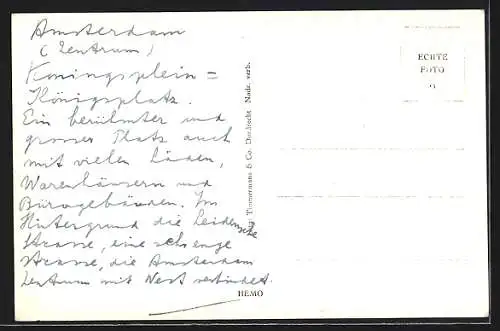 Amsterdam
(Zentrum)
Koningsplein =
Königsplatz.
Ein berühmter und
grosser Platz auch
mit vielen Läden,
Warenhäusern und
Bürogebäuden. Im
Hintergrund die Leidensche
Strasse, eine sehr enge
Strasse, die Amsterdam
Zentrum mit West verbindet.
Timmermans & Co. Dordrecht Nadr. verb.
HEMO
ECHTE
FOTO